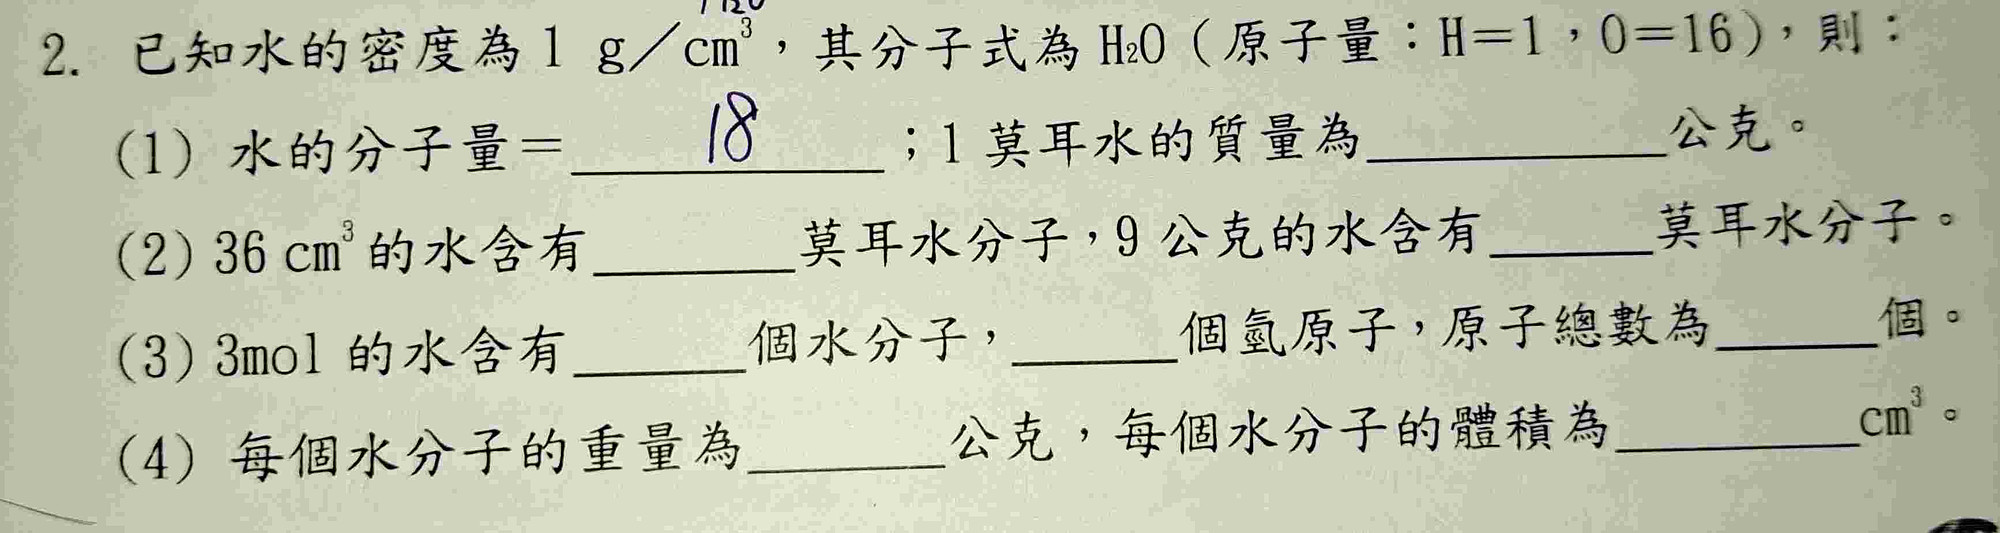 2. 已知水的密度為1 g／cm³，其分子式為H₂O（原子量：H＝1，O＝16），則：
(1) 水的分子量＝ 18 ；1莫耳水的質量為＿＿＿＿＿公克。
(2) 36 cm³的水含有＿＿＿＿莫耳水分子，9公克的水含有＿＿＿莫耳水分子。
(3) 3mol 的水含有＿＿＿個水分子，＿＿＿個氫原子，原子總數為＿＿＿個。
(4) 每個水分子的重量為＿＿＿＿公克，每個水分子的體積為＿＿＿＿＿cm³。